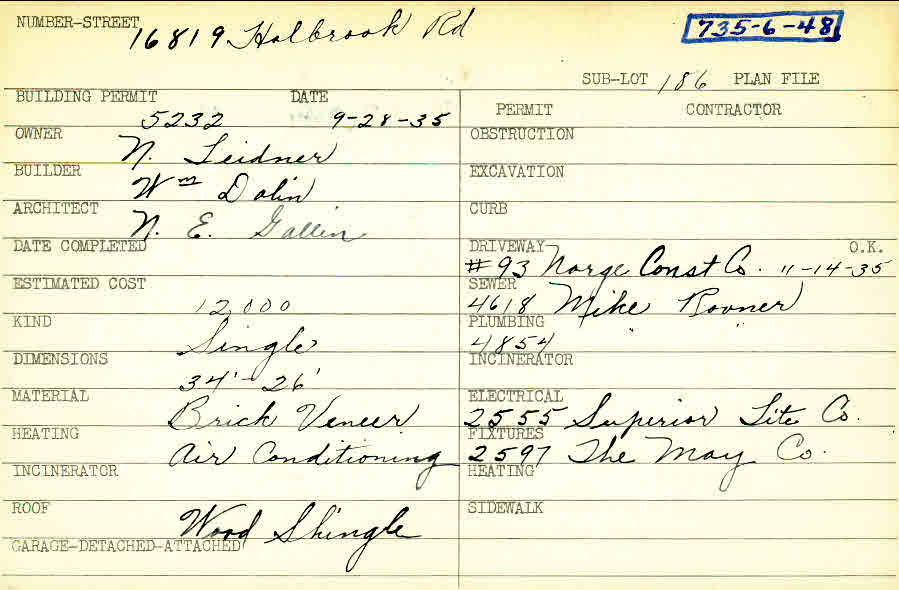 NUMBER-STREET 16819 Holbrook Rd
735-6-48
SUB-LOT 186 PLAN FILE
BUILDING PERMIT 5232 DATE 9-28-35
OWNER N. Leidner
BUILDER Wm Dolin
ARCHITECT N. E. Gallin
DATE COMPLETED
ESTIMATED COST 12,000
KIND Single
DIMENSIONS 34'-26'
MATERIAL Brick Veneer
HEATING Air Conditioning
INCINERATOR
ROOF Wood Shingle
GARAGE-DETACHED-ATTACHED
PERMIT CONTRACTOR
OBSTRUCTION
EXCAVATION
CURB
DRIVEWAY O.K.
#93 Norge Const Co. 11-14-35
SEWER
4618 Mike Rovner
PLUMBING " "
4854
INCINERATOR
ELECTRICAL
2555 Superior Lite Co.
FIXTURES
2597 The May Co.
HEATING
SIDEWALK